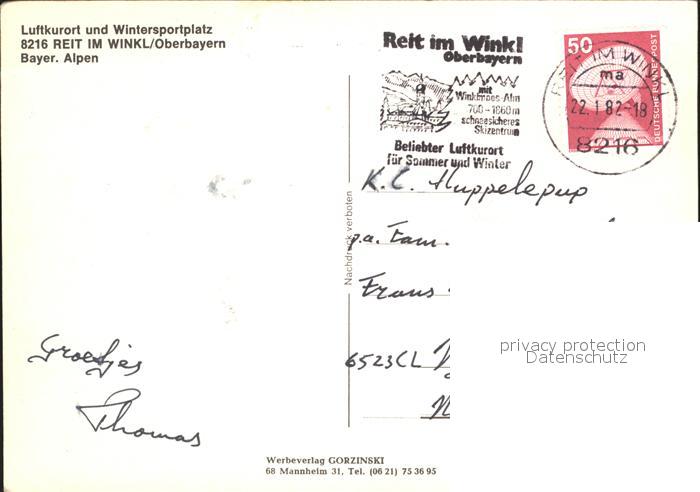 Luftkurort und Wintersportplatz
8216 REIT IM WINKL/Oberbayern
Bayer. Alpen
Reit im Winkl
Oberbayern
mit
Winklmoos-Alm
700-1860m
schneesicheres
Skizentrum
Beliebter Luftkurort
für Sommer und Winter
50
DEUTSCHE BUNDESPOST
REIT IM WINKL
ma
22.1.82-18
8216
Nachdruck verboten
K.C. Huppelepup
p.a. Fam.
Frans
6523CL
privacy protection
Datenschutz
Groetjes
Thomas
Werbeverlag GORZINSKI
68 Mannheim 31, Tel. (06 21) 75 36 95